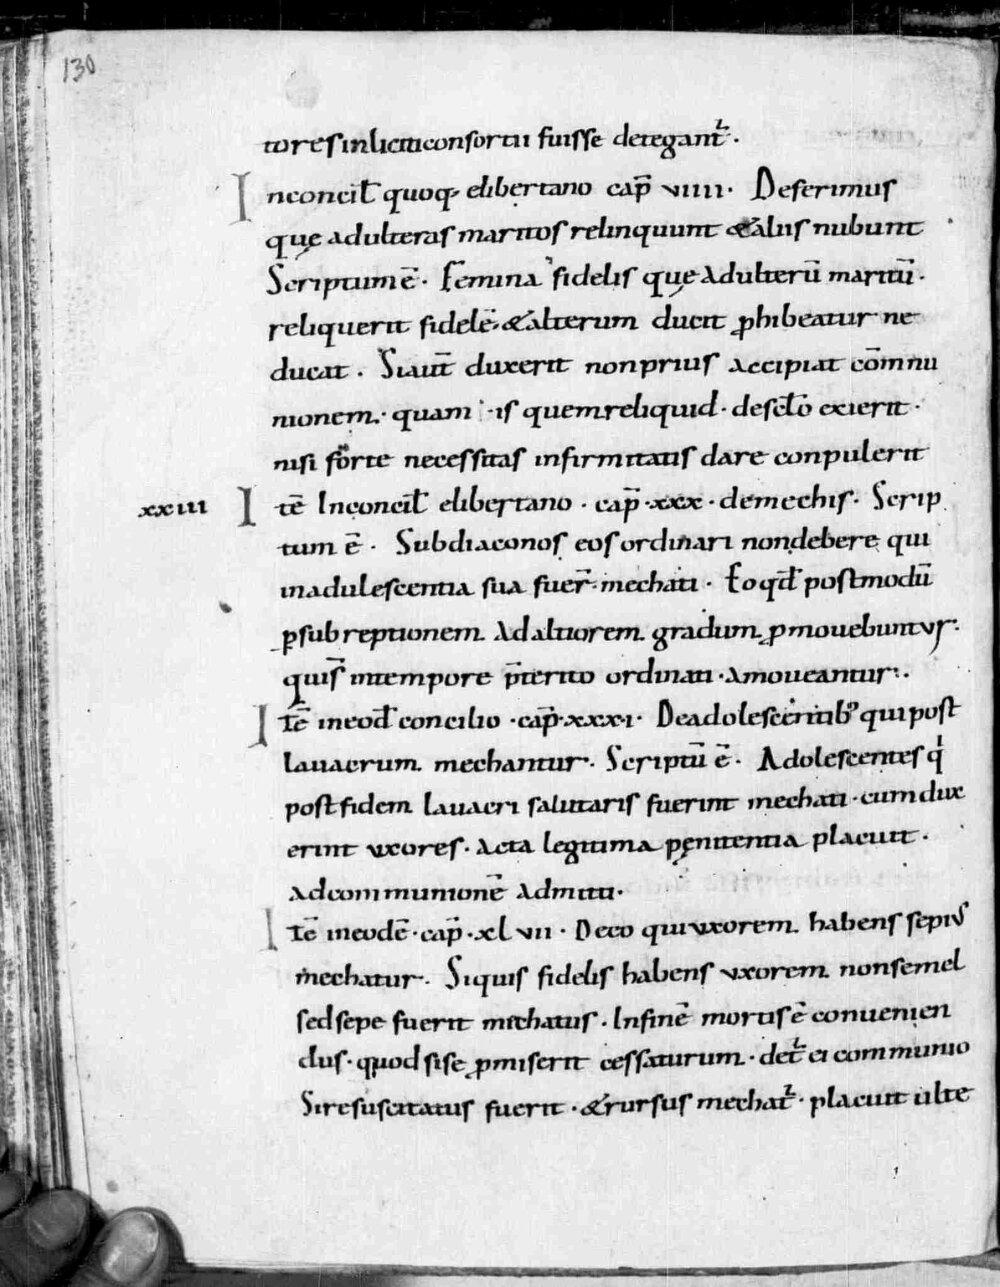 130
tores inliciti consortii fuisse detegant̃.
In conciƚ quoq; elibertano cap̃ viiii. De ferimus
quę adulteras maritos relinquunt & aliis nubunt
Scriptum ē. Femina fidelis quę adulterū maritū.
reliquerit fidelē. & alterum ducit ꝓhibeatur ne
ducat. Si aut̄ duxerit non prius accipiat cōmnu
nionem. quam is quem reliquid. de sctō exierit.
nisi forte necessitas infirmitatis dare conpulerit
xxiii Itē In conciƚ elibertano. cap̃. xxx. de mechis. Scrip
tum ē. Subdiaconos eos ordinari non debere qui
in adulescentia sua fuer̃. mechati. Eo qđ postmodū
ꝑ subreptionem ad altiorem gradum ꝓmouebuntur.
quis̄ in tempore p̄terito ordinati. amoueantur.
Itē in eođ concilio. cap̃. xxxi. De adolescentib; qui post
lauacrum mechantur. Scriptū ē. Adolescentes qi
post fidem lauacri salutaris fuerint mechati. cum dux
erint uxores. acta legitima pęnitentia placuit.
ad communionē admitti.
Itē in eodē. cap̃. xlvii. De eo qui uxorem habens sepius
mechatur. Si quis fidelis habens uxorem non semel
sed sepe fuerit mechatus. In finē mortis ē conuenien
dus. quod si se ꝓmiserit cessaturum. det̃ ei communio
Si resuscitatus fuerit. & rursus mechat̃. placuit ulte